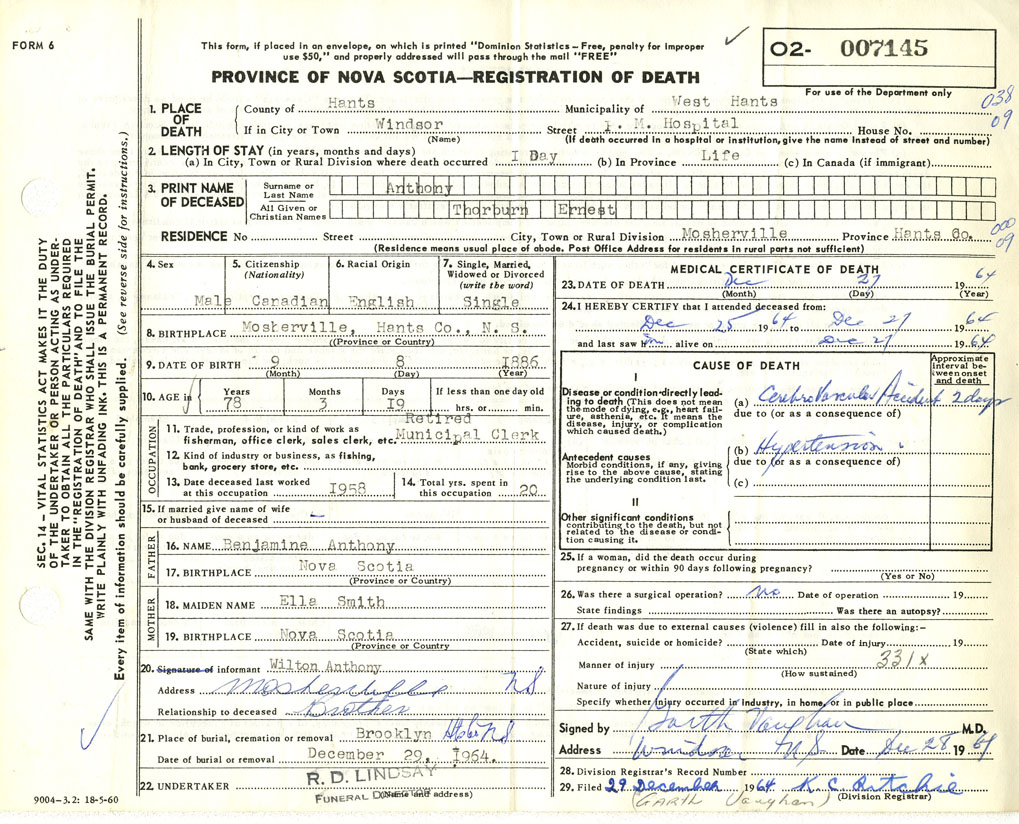 FORM 6
This form, if placed in an envelope, on which is printed "Dominion Statistics – Free, penalty for improper
use $50," and properly addressed will pass through the mail "FREE"
PROVINCE OF NOVA SCOTIA—REGISTRATION OF DEATH
O2- 007145
For use of the Department only
038
09
1. PLACE OF DEATH
County of Hants Municipality of West Hants
If in City or Town Windsor Street I. M. Hospital House No.
(Name) (If death occurred in a hospital or institution, give the name instead of street and number)
2. LENGTH OF STAY (in years, months and days)
(a) In City, Town or Rural Division where death occurred I Day (b) In Province Life (c) In Canada (if immigrant)
3. PRINT NAME OF DECEASED
Surname or Last Name Anthony
All Given or Christian Names Thorburn Ernest
RESIDENCE No Street City, Town or Rural Division Mosherville Province Hants Co.
(Residence means usual place of abode. Post Office Address for residents in rural parts not sufficient)
000
09
4. Sex 5. Citizenship (Nationality) 6. Racial Origin 7. Single, Married, Widowed or Divorced (write the word)
Male Canadian English Single
8. BIRTHPLACE Mosherville, Hants Co., N. S.
(Province or Country)
9. DATE OF BIRTH 9 8 1886
(Month) (Day) (Year)
10. AGE in Years Months Days If less than one day old
78 3 I9 hrs. or min.
OCCUPATION
11. Trade, profession, or kind of work as Retired
fisherman, office clerk, sales clerk, etc. Municipal Clerk
12. Kind of industry or business, as fishing,
bank, grocery store, etc.
13. Date deceased last worked at this occupation I958
14. Total yrs. spent in this occupation 20
15. If married give name of wife
or husband of deceased –
FATHER
16. NAME Benjamine Anthony
17. BIRTHPLACE Nova Scotia
(Province or Country)
MOTHER
18. MAIDEN NAME Ella Smith
19. BIRTHPLACE Nova Scotia
(Province or Country)
20. Signature of informant Wilton Anthony
Address Mosherville NS
Relationship to deceased Brother
21. Place of burial, cremation or removal Brooklyn NS
Date of burial or removal December 29, I964.
22. UNDERTAKER R. D. LINDSAY
FUNERAL DIRECTOR
(Name and address)
9004-3.2: 18-5-60
MEDICAL CERTIFICATE OF DEATH
23. DATE OF DEATH Dec 27 1964
(Month) (Day) (Year)
24. I HEREBY CERTIFY that I attended deceased from:
Dec 25 1964 to Dec 27 1964
and last saw him alive on Dec 27 1964
CAUSE OF DEATH
Approximate interval between onset and death
I
Disease or condition directly leading
to death (This does not mean
the mode of dying, e.g., heart failure,
asthenia, etc. It means the
disease, injury, or complication
which caused death.)
(a) Cerebro Vascular Accident 2 days
due to (or as a consequence of)
Antecedent causes
Morbid conditions, if any, giving
rise to the above cause, stating
the underlying condition last.
(b) Hypertension
due to (or as a consequence of)
(c)
II
Other significant conditions
contributing to the death, but not
related to the disease or condition
causing it.
25. If a woman, did the death occur during
pregnancy or within 90 days following pregnancy?
(Yes or No)
26. Was there a surgical operation? no Date of operation 19
State findings Was there an autopsy?
27. If death was due to external causes (violence) fill in also the following:–
Accident, suicide or homicide? Date of injury 19
(State which)
Manner of injury 331X
(How sustained)
Nature of injury
Specify whether injury occurred in industry, in home, or in public place
Signed by Garth Vaughan M.D.
Address Windsor N.S. Date Dec 28 1964
28. Division Registrar's Record Number
29. Filed 29 December 1964 K C Ritchie
(GARTH Vaughan) (Division Registrar)
SEC. 14 – VITAL STATISTICS ACT MAKES IT THE DUTY
OF THE UNDERTAKER OR PERSON ACTING AS UNDER-
TAKER TO OBTAIN ALL THE PARTICULARS REQUIRED
IN THE "REGISTRATION OF DEATH" AND TO FILE THE
SAME WITH THE DIVISION REGISTRAR WHO SHALL ISSUE THE BURIAL PERMIT.
WRITE PLAINLY WITH UNFADING INK. THIS IS A PERMANENT RECORD.
Every item of information should be carefully supplied. (See reverse side for instructions.)